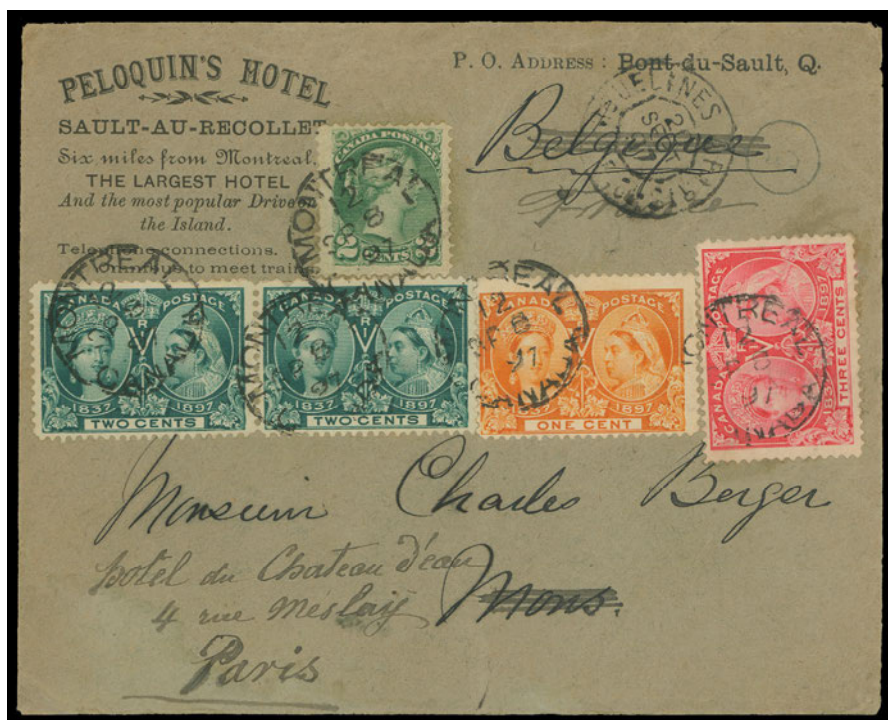 PELOQUIN'S HOTEL
SAULT-AU-RECOLLET
Six miles from Montreal.
THE LARGEST HOTEL
And the most popular Drive on
the Island.
Telephone connections.
Omnibus to meet trains.
P. O. ADDRESS : Bont-du-Sault, Q.
Belgique
CANADA POSTAGE
2 CENTS
MONTREAL
CANADA
CANADA POSTAGE
1837 1897
TWO CENTS
CANADA POSTAGE
1837 1897
TWO CENTS
MONTREAL
CANADA
CANADA POSTAGE
1837 1897
ONE CENT
MONTREAL
CANADA
CANADA POSTAGE
1837 1897
THREE CENTS
MONTREAL
CANADA
Monsieur Charles Berger
hotel du Chateau d'eau
4 rue Meslay Mons.
Paris